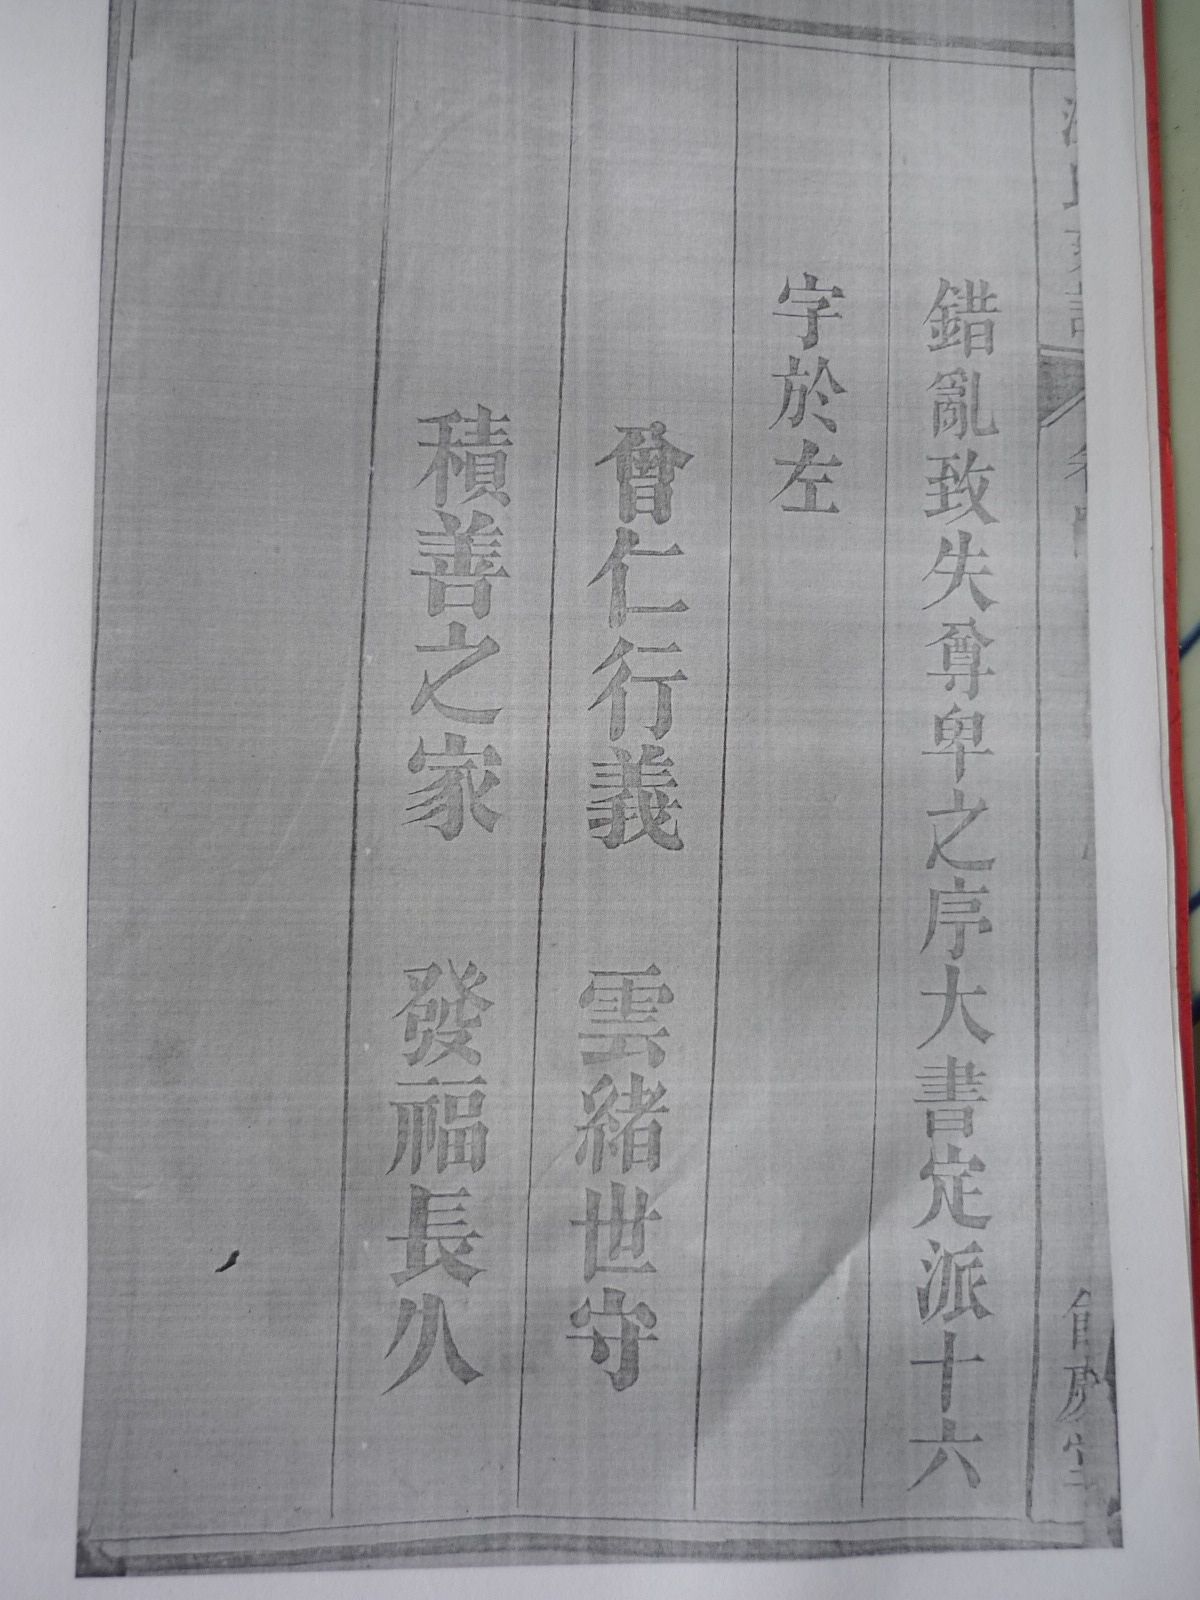 錯亂致失尊卑之序大書定派十六
字於左
曾仁行義　雲緒世守
積善之家　發福長久